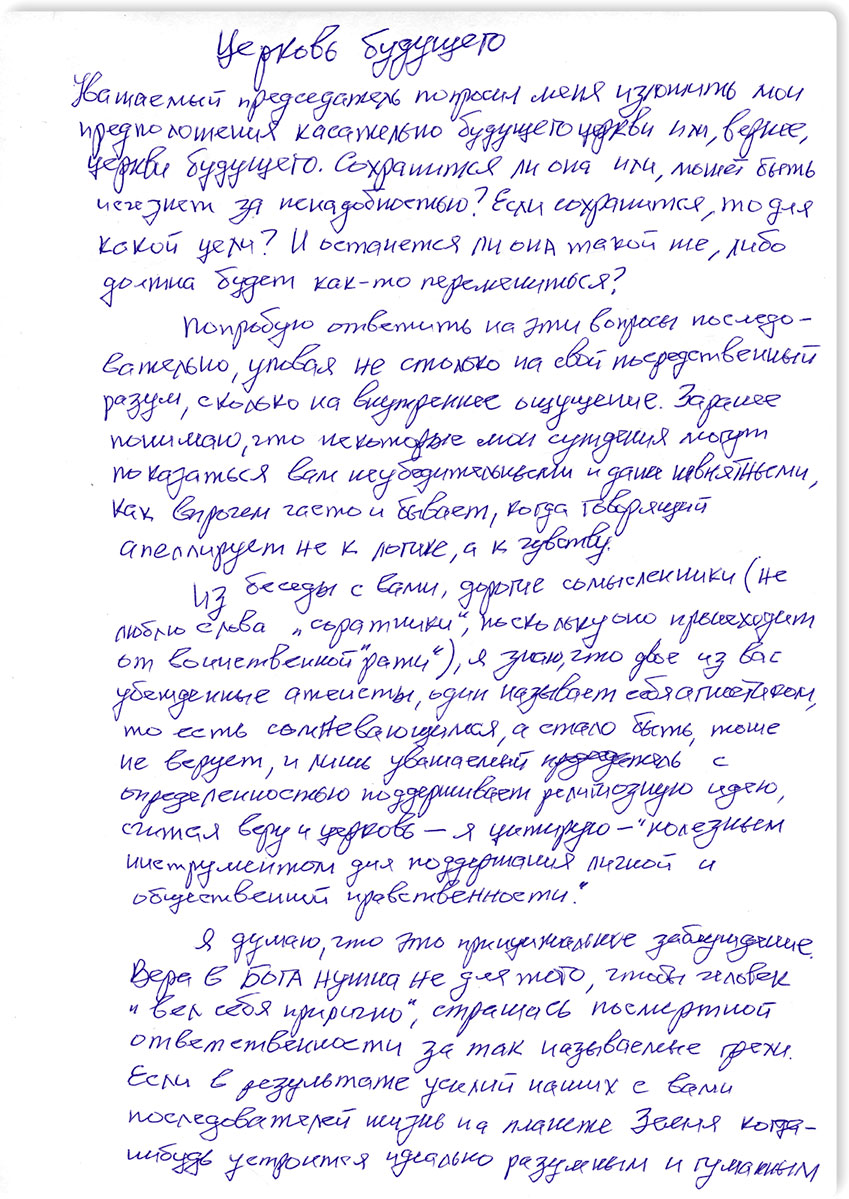 Церковь будущего
Уважаемый председатель попросил меня изложить мои
предположения касательно будущего церкви или, вернее,
церкви будущего. Сохранится ли она или, может быть
исчезнет за ненадобностью? Если сохранится, то для
какой цели? И останется ли она такой же, либо
должна будет как-то перемениться?
Попробую ответить на эти вопросы последо-
вательно, уповая не столько на свой посредственный
разум, сколько на внутреннее ощущение. Заранее
понимаю, что некоторые мои суждения могут
показаться вам неубедительными и даже невнятными,
как впрочем часто и бывает, когда говорящий
апеллирует не к логике, а к чувству.
Из беседы с вами, дорогие сомысленники (не
люблю слова „соратники“, поскольку оно происходит
от воинственной "рати"), я знаю, что двое из вас
убежденные атеисты, один называет себя агностиком,
то есть сомневающимся, а стало быть, тоже
не верует, и лишь уважаемый председатель с
определенностью поддерживает религиозную идею,
считая веру и церковь – я цитирую – "полезным
инструментом для поддержания личной и
общественной нравственности."
Я думаю, что это принципиальное заблуждение.
Вера в Бога нужна не для того, чтобы человек
"вел себя прилично", страшась посмертной
ответственности за так называемые грехи.
Если в результате усилий наших с вами
последователей жизнь на планете Земля когда-
нибудь устроится идеально разумным и гуманным